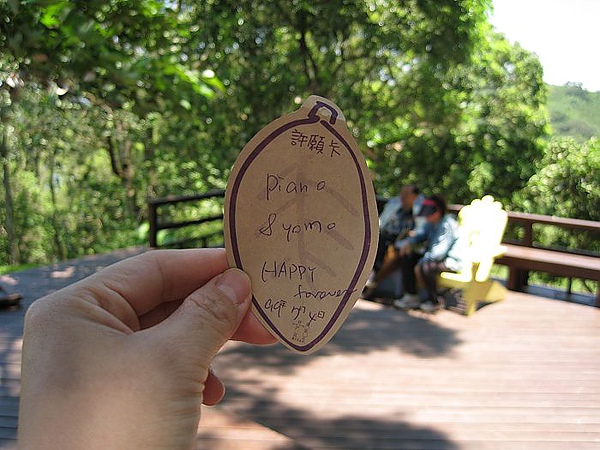 許願卡
piano
& yomo
HAPPY
forever